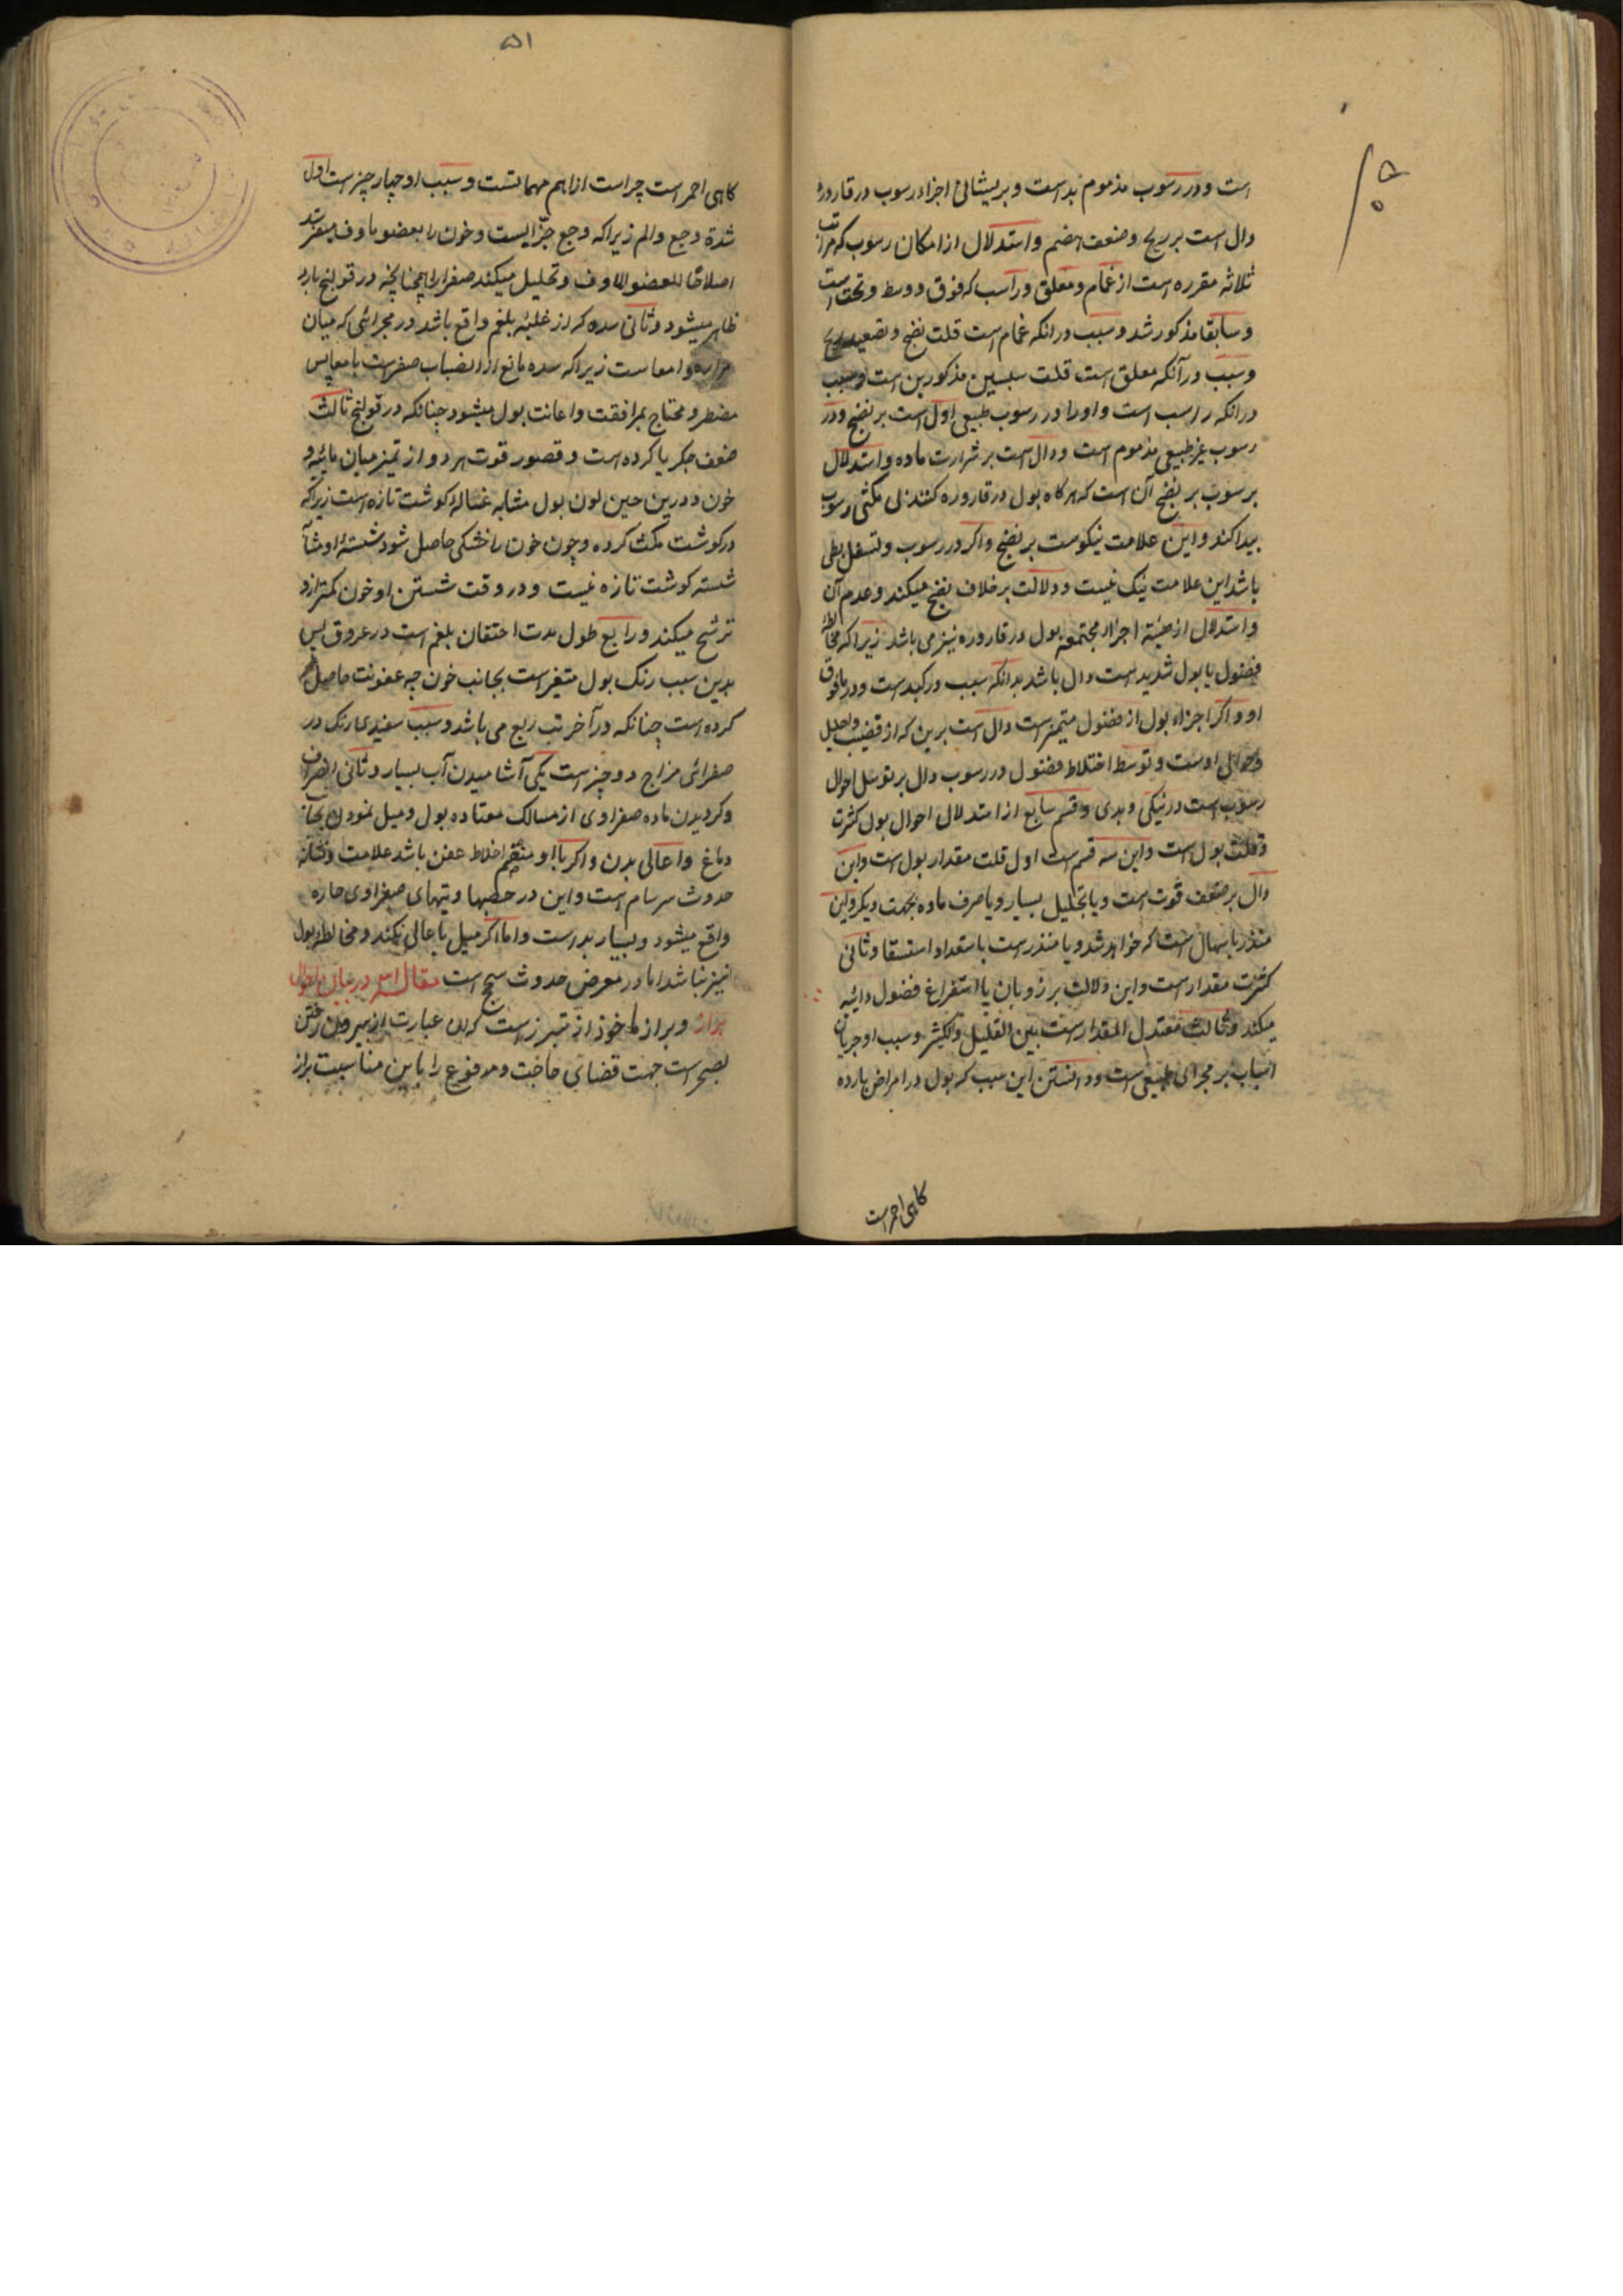 است و در رسوب مذموم بد است و پریشانی اجزاء رسوب در قاروره
دال است بر ریح و ضعف هضم و استدلال از امکان رسوب که مراتب
ثلاثه مقرره است از غمام و معلق و راسب که فوق و وسط و تحت است
و سابقا مذکور شد و سبب در انکه غمام است قلت نضج و تصعید ریح
و سبب در آنکه معلق است قلت سببین مذکورین است و سبب
در انکه راسب است و او را در رسوب طبیعی اول است بر نضج و در
رسوب غیر طبیعی مذموم است و دال است بر شرارت ماده و استدلال
بر سوب بر نضج آن است که هرکاه بول در قاروره کنند لی مکثی رسوب
پیدا کند و این علامت نیکوست بر نضج و اکر در رسوب و تسفل بطی
باشد این علامت نیک نیست و دلالت بر خلاف نضج میکند و عدم آن
و استدلال از هیئة اجزاء مجتمعه بول در قاروره نیز می باشد زیرا که مخالطة
فضول با بول شدید است دال باشد بدانکه سبب در کبد است و در مافوق
او و اکر اجزاء بول از فضول متمیز است دال است برین که از قضیب و احلیل
و حوالی اوست و توسط اختلاط فضول در رسوب دال بر توسل احوال
رسوب است در نیکی و بدی و قسم سابع از استدلال احوال بول کثرت
و قلت بول است و این سه قسم است اول قلت مقدار بول است و این
دال بر ضعف قوت است و یا تحلیل بسیار و یا صرف ماده بجهت دیکر و این
منذر باسهال است که خواهد شد و یا منذر است باستعداد استسقا و ثانی
کثرت مقدار است و این دلالت بر ذوبان یا استفراغ فضول دائیه
میکند و ثالث معتدل المقدار است بین القلیل و الکثیر و سبب او جریان
اسباب بر مجرای طبیعی است و دانستن این سبب که بول در امراض بارده
کاهی احمر است
۵۱
کاهی احمر است چراست از اهم مهماتست و سبب او چهار چیز است اول
شدة وجع و الم زیرا که وجع جذابست و خون را بعضو ماوف میفرستد
اصلاحا للعضو الماوف و تحلیل میکند صفرا را همچنانچه در قولنج بارد
ظاهر میشود و ثانی سده که از غلبه بلغم واقع باشد در مجرائی که میان
مراره و امعاست زیرا که سده مانع از انصباب صفراست بامعا پس
مضطر و محتاج بمرافقت و اعانت بول میشود چنانکه در قولنج ثالث
ضعف جکر یا کرده است و قصور قوت هر دو از تمیز میان مائیه و
خون و درین حین لون بول مشابه غساله کوشت تازه است زیرا که
در کوشت مکث کرده و چون خون را خشکی حاصل شود شسته او مشابه
شسته کوشت تازه نیست و در وقت شستن او خون کمتر ازو
ترشح میکند و رابع طول مدت احتقان بلغم است در عروق پس
بدین سبب رنک بول متغیر است بجانب خون چه عفونت حاصل
کرده است چنانکه در آخر تب ربع می باشد و سبب سفیدی رنک در
صفرائی مزاج دو چیز است یکی آشامیدن آب بسیار و ثانی انصراف
و کردیدن ماده صفراوی از مسالک معتاده بول و میل نمودن بجانب
دماغ و اعالی بدن و اکر با او منضم اخلاط عفن باشد علامت و نشانه
حدوث سرسام است و این در حصبها و تبهای صفراوی حاره
واقع میشود و بسیار بد است و اما اکر میل باعالی نکند و مخالطة بول
نیز نباشد اما در معرض حدوث سحج است مقاله در بیان احوال
براز و براز ماخوذ از تبرز است که ان عبارت از بیرون رفتن
بصحرا است جهت قضای حاجت و مدفوع را باین مناسبت براز